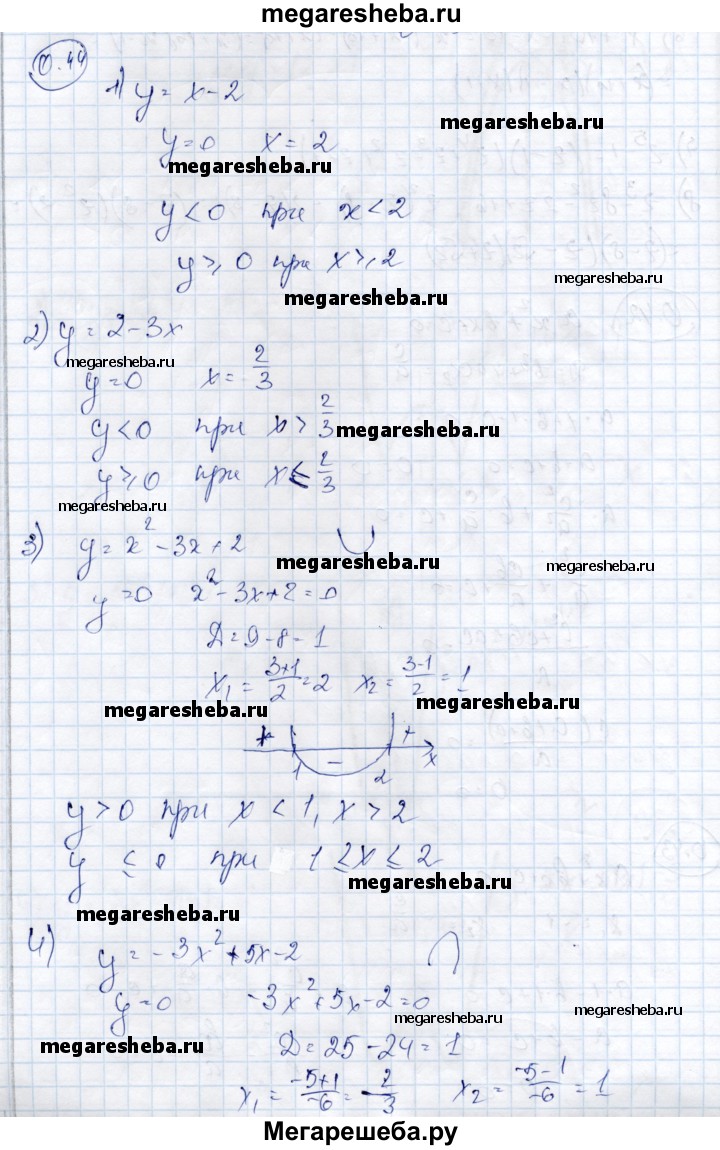 megaresheba.ru
0.44
1) y = x - 2
megaresheba.ru
y=0 x = 2
megaresheba.ru
y < 0 при x < 2
y ⩾ 0 при x ⩾ 2
megaresheba.ru
megaresheba.ru
2) y = 2 - 3x
megaresheba.ru
y = 0 x = 2/3
y < 0 при x > 2/3
megaresheba.ru
y ⩾ 0 при x ⩽ 2/3
megaresheba.ru
3) y = x² - 3x + 2
megaresheba.ru
megaresheba.ru
y = 0 x² - 3x + 2 = 0
Д = 9 - 8 = 1
x₁ = (3+1)/2 = 2 x₂ = (3-1)/2 = 1
megaresheba.ru
megaresheba.ru
+ - + x
1 2
y > 0 при x < 1, x > 2
y ≤ 0 при 1 ≥ x ≤ 2
megaresheba.ru
megaresheba.ru
4) y = -3x² + 5x - 2
y = 0 -3x² + 5x - 2 = 0
megaresheba.ru
megaresheba.ru
megaresheba.ru
Д = 25 - 24 = 1
x₁ = (-5+1)/-6 = -2/3 x₂ = (-5-1)/-6 = 1
Мегарешеба.ру